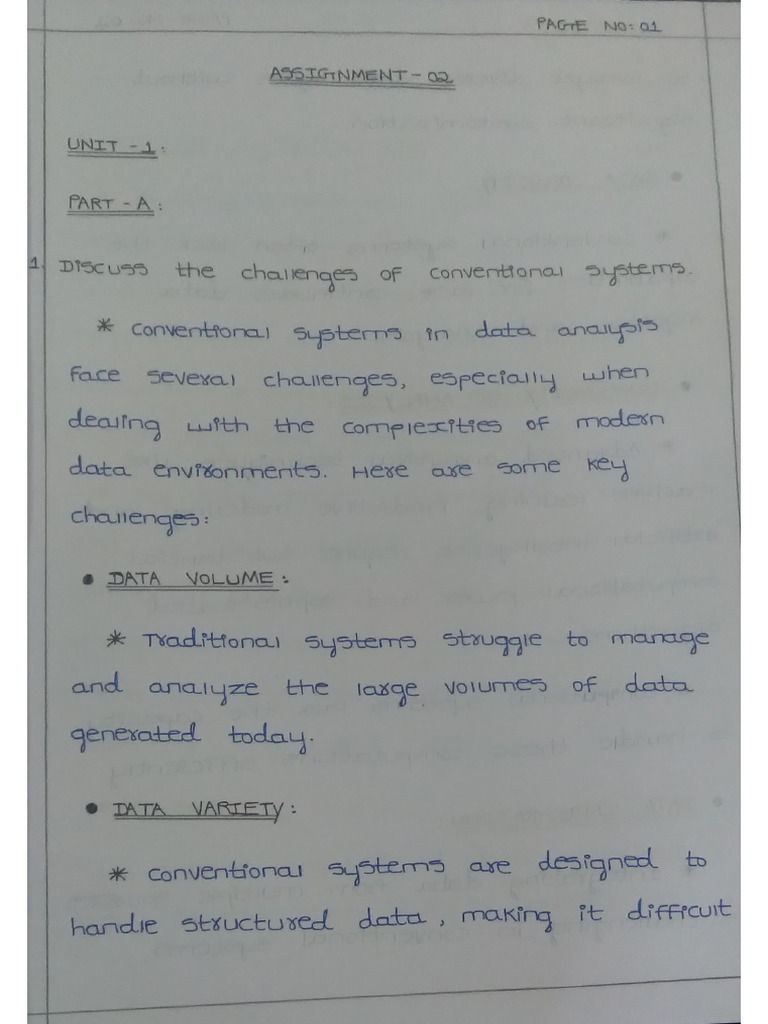 PAGE NO: 01
ASSIGNMENT - 02
UNIT - 1:
PART - A:
1. Discuss the challenges of conventional systems.
* Conventional systems in data analysis
face several challenges, especially when
dealing with the complexities of modern
data environments. Here are some key
challenges:
• DATA VOLUME:
* Traditional systems struggle to manage
and analyze the large volumes of data
generated today.
• DATA VARIETY:
* Conventional systems are designed to
handle structured data, making it difficult